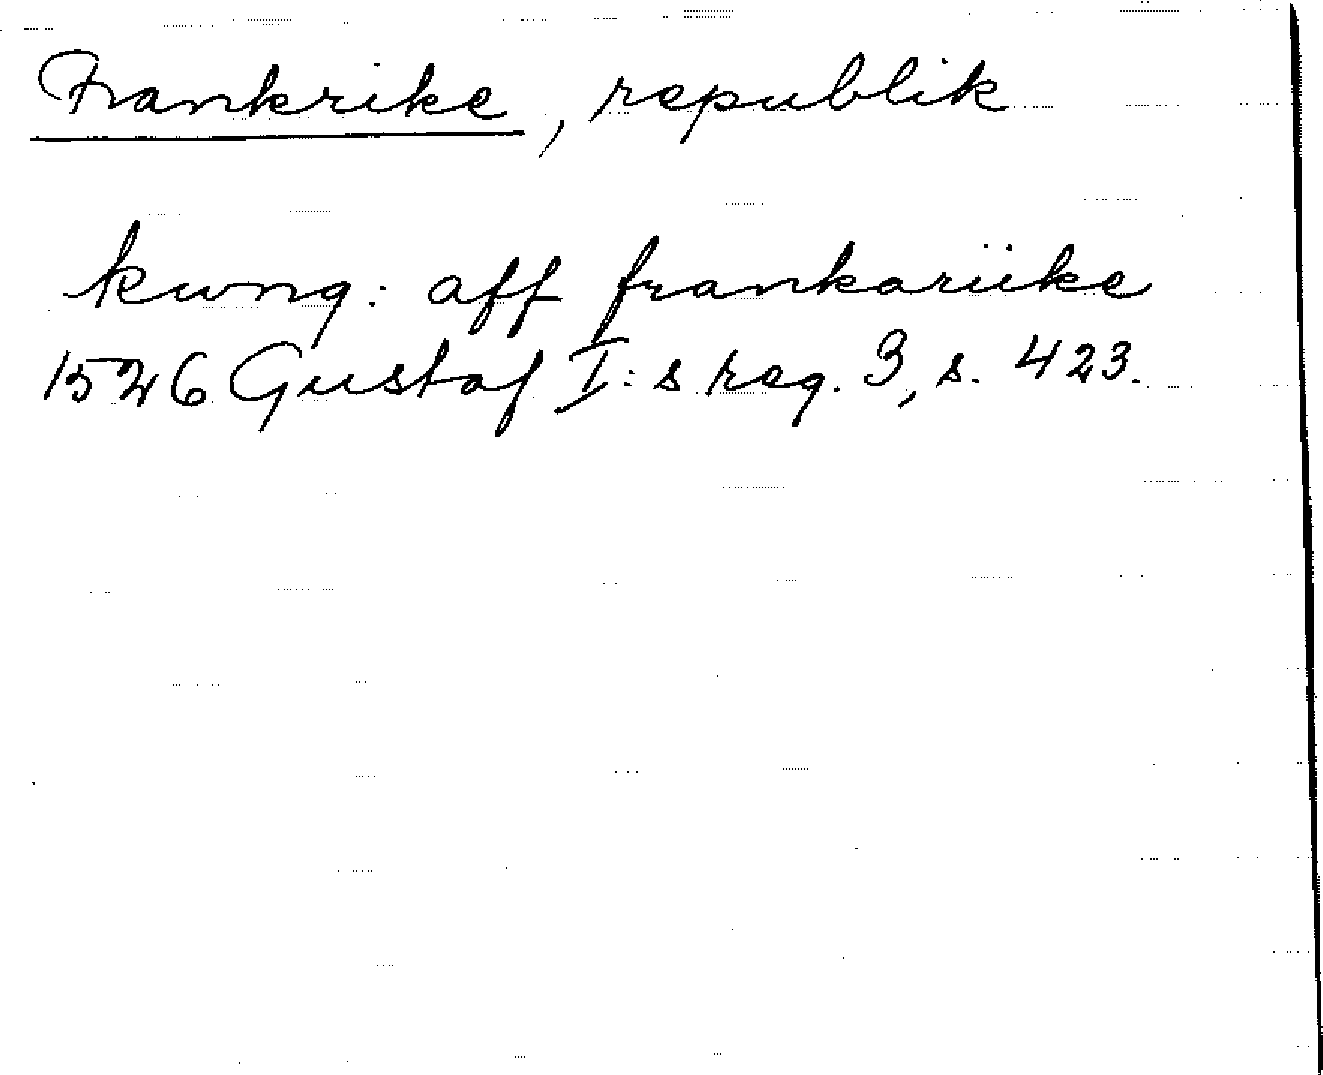 Frankrike, republik
kwng: aff frankariike
1526 Gustaf I:s reg. 3, s. 423.